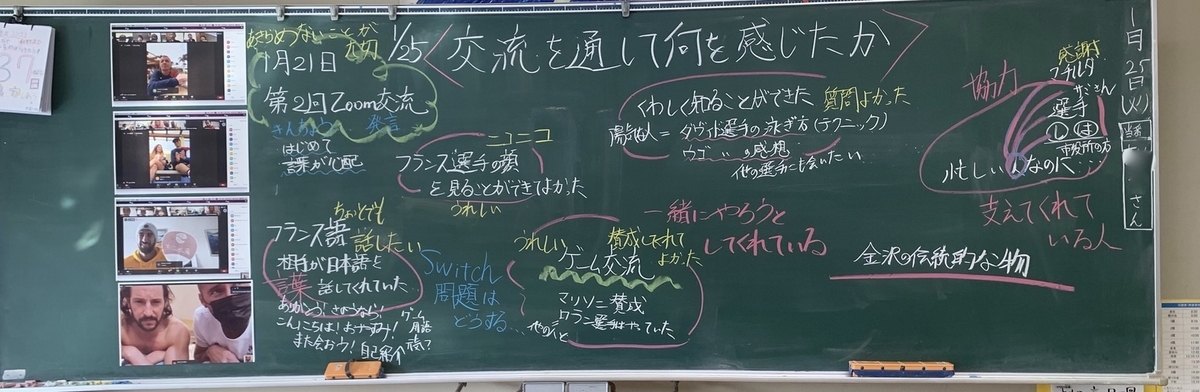 あきらめないことが
大切
1月21日
第2回Zoom交流
きんちょう
発言
はじめて
言葉が心配
1/25 <交流を通して何を感じたか>
ニコニコ
フランス選手の顔
を見ることができてよかった
うれしい
くわしく知ることができた 質問よかった
陽気な人=ダヴィド選手の泳ぎ方(テクニック)
ウゴ 〃 の感想
他の選手にも会いたい
ちょっとでも
フランス語 話したい
相手が日本語を
言葉 話してくれていた
ありがとう! さようなら!
こんにちは! おやすみ!
また会おう! 自己紹介
ゲーム
用語
Switch
問題は
どうする…
うれしい
賛成してくれて
よかった
ゲーム交流
マリソニ賛成
フラン選手はやっていた
他の人と
一緒にやろうと
してくれている
協力
感謝
選手
市役所の方
忙しい人なのに…
支えてくれて
いる人
金沢の伝統的な物
1月25日(火)
さん
37